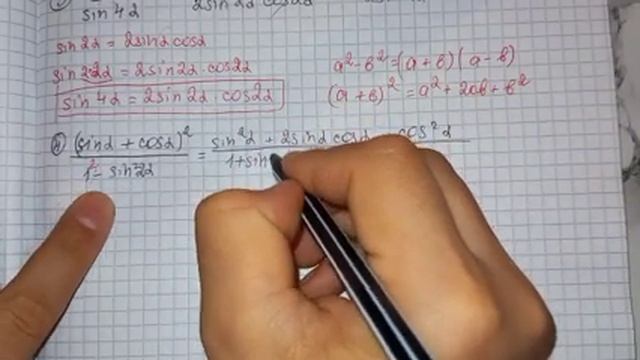 sin 4α 2sin2α cos2α
sin 2α = 2sinα cosα
sin 2·2α = 2sin2α · cos2α
sin 4α = 2sin2α · cos2α
a² - b² = (a + b)(a - b)
(a + b)² = a² + 2ab + b²
(sinα + cosα)² / 1² - sin²2α = sin²α + 2sinα cosα + cos²α / 1+sin